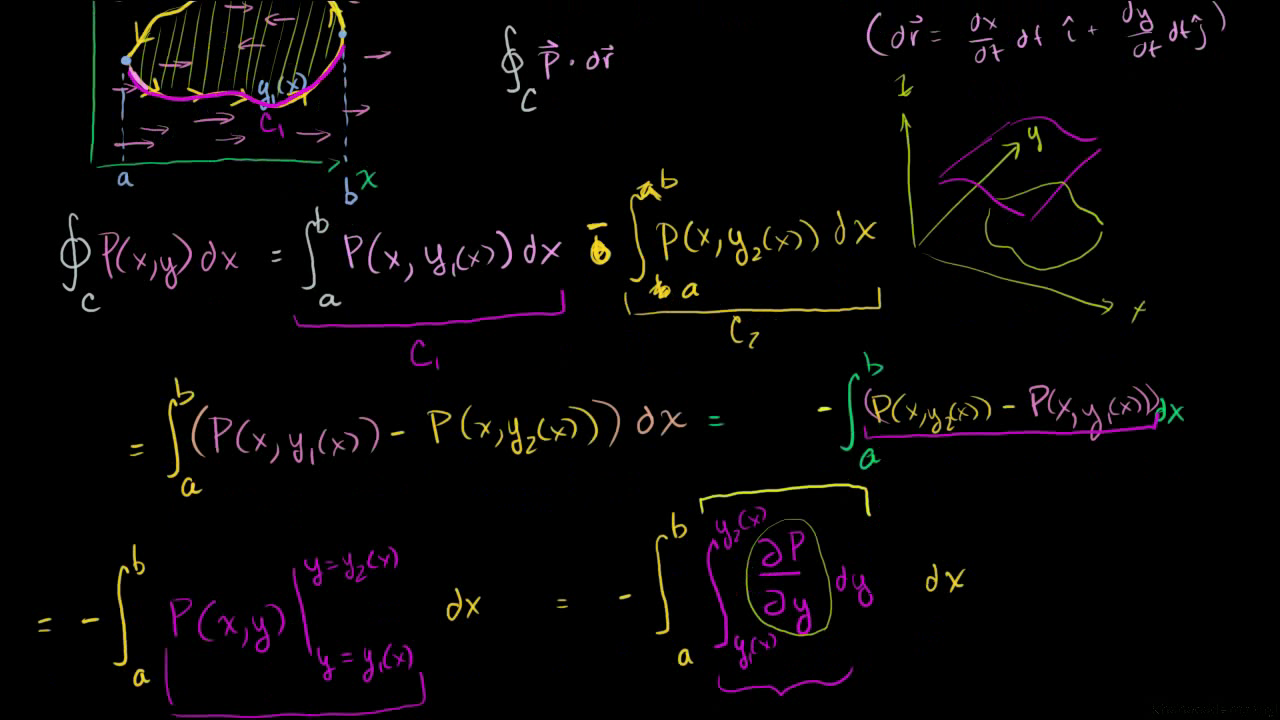 ∮_C P⃗ · dr⃗
(dr⃗ = dx/dt dt î + dy/dt dt ĵ)
y₁(x)
C₁
a b x
z
y
x
∮_C P(x,y) dx = ∫_a^b P(x, y₁(x)) dx - ∫_a^b P(x, y₂(x)) dx
C₁ C₂
= ∫_a^b (P(x, y₁(x)) - P(x, y₂(x))) dx = - ∫_a^b (P(x, y₂(x)) - P(x, y₁(x))) dx
= - ∫_a^b P(x,y) |_{y = y₁(x)}^{y = y₂(x)} dx = - ∫_a^b ∫_{y₁(x)}^{y₂(x)} ∂P/∂y dy dx